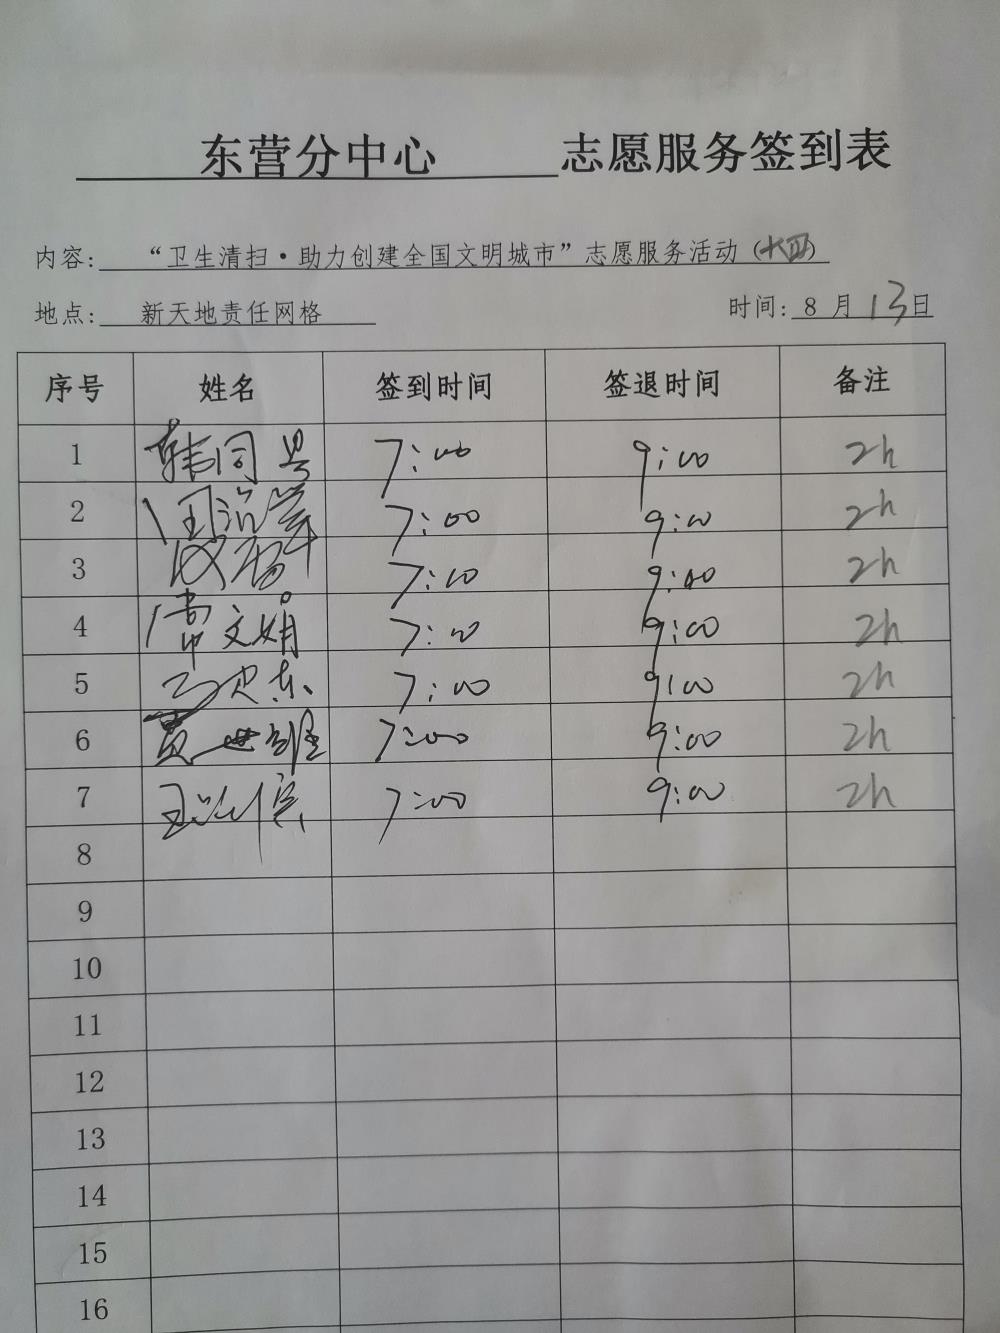 东营分中心 志愿服务签到表
内容: “卫生清扫·助力创建全国文明城市”志愿服务活动（十四）
地点: 新天地责任网格 时间: 8 月 13 日
序号 姓名 签到时间 签退时间 备注
1 韩同 7:00 9:00 2h
2 7:00 9:00 2h
3 7:00 9:00 2h
4 常文娟 7:00 9:00 2h
5 7:00 9:00 2h
6 贾世 7:00 9:00 2h
7 王 7:00 9:00 2h
8
9
10
11
12
13
14
15
16